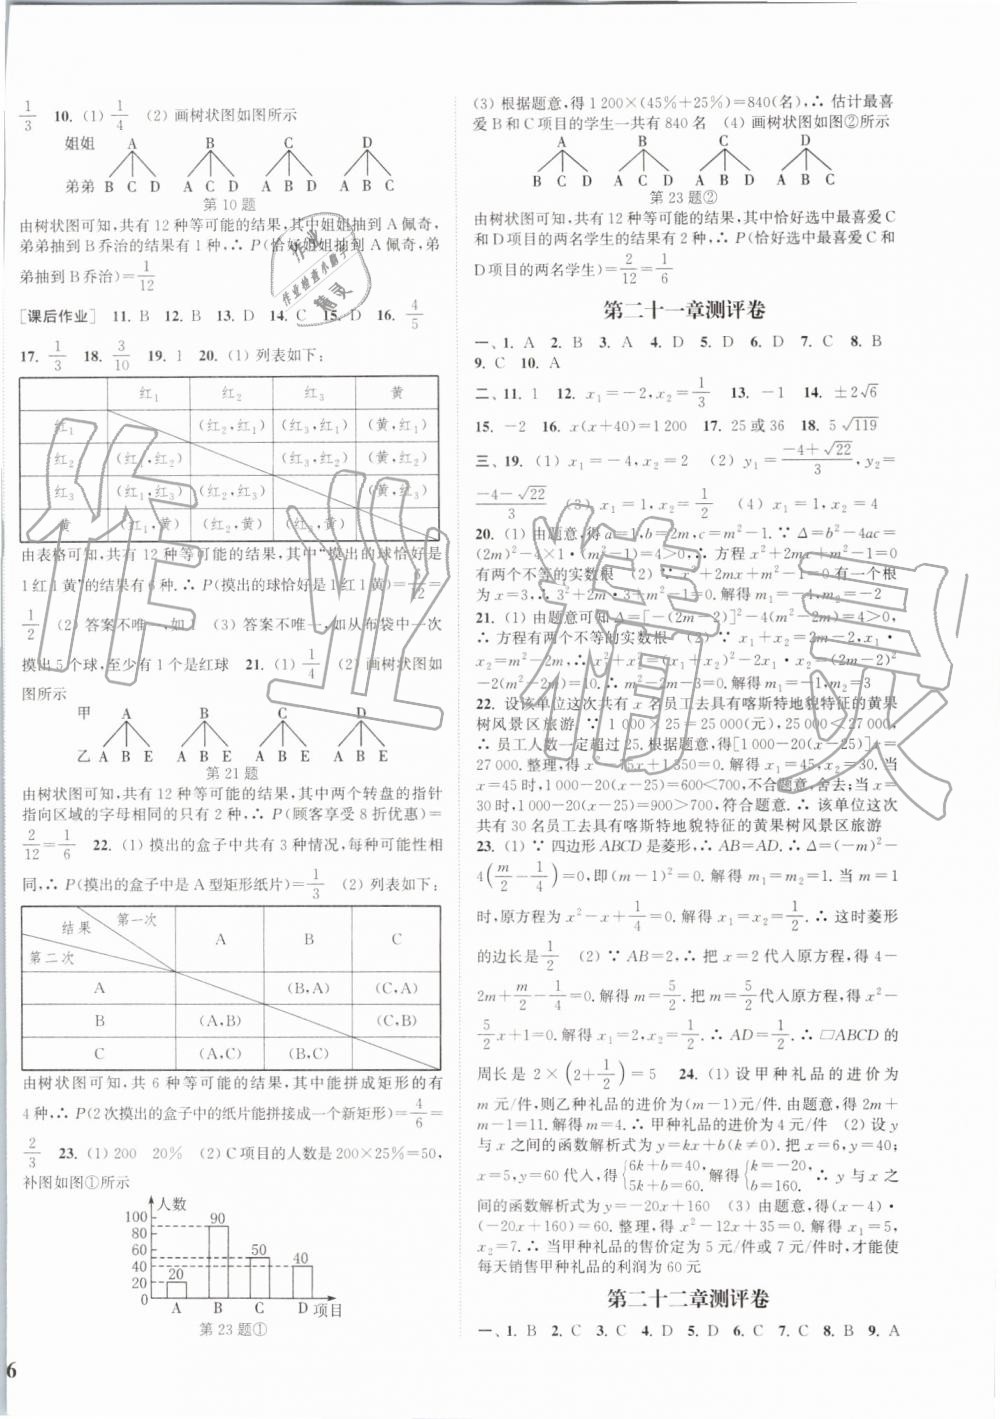 1/3 10. (1) 1/4 (2) 画树状图如图所示
姐姐 A B C D
弟弟 B C D A C D A B D A B C
第10题
由树状图可知,共有12种等可能的结果,其中姐姐抽到A佩奇,
弟弟抽到B乔治的结果有1种,∴ P(恰好姐姐抽到A佩奇,弟
弟抽到B乔治)=1/12
[课后作业] 11. B 12. B 13. D 14. C 15. D 16. 4/5
17. 1/3 18. 3/10 19. 1 20. (1) 列表如下:
红₁ 红₂ 红₃ 黄
红₁ (红₂,红₁) (红₃,红₁) (黄,红₁)
红₂ (红₁,红₂) (红₃,红₂) (黄,红₂)
红₃ (红₁,红₃) (红₂,红₃) (黄,红₃)
黄 (红₁,黄) (红₂,黄) (红₃,黄)
由表格可知,共有12种等可能的结果,其中“摸出的球恰好是
1红1黄”的结果有6种.∴ P(摸出的球恰好是1红1黄)=6/12=
1/2 (2) 答案不唯一,如1 (3) 答案不唯一,如从布袋中一次
摸出5个球,至少有1个是红球 21. (1) 1/4 (2) 画树状图如
图所示
甲 A B C D
乙 A B E A B E A B E A B E
第21题
由树状图可知,共有12种等可能的结果,其中两个转盘的指针
指向区域的字母相同的只有2种,∴ P(顾客享受8折优惠)=
2/12=1/6 22. (1) 摸出的盒子中共有3种情况,每种可能性相
同,∴ P(摸出的盒子中是A型矩形纸片)=1/3 (2) 列表如下:
结果 第一次 第二次 A B C
A (B,A) (C,A)
B (A,B) (C,B)
C (A,C) (B,C)
由树状图可知,共6种等可能的结果,其中能拼成矩形的有
4种,∴ P(2次摸出的盒子中的纸片能拼接成一个新矩形)=4/6=
2/3 23. (1) 200 20% (2) C项目的人数是200×25%=50,
补图如图①所示
人数
100
80
60
40
20
0
20 90 50 40
A B C D 项目
第23题①
6
(3) 根据题意,得1 200×(45%+25%)=840(名),∴ 估计最喜
爱B和C项目的学生一共有840名 (4) 画树状图如图②所示
A B C D
B C D A C D A B D A B C
第23题②
由树状图可知,共有12种等可能的结果,其中恰好选中最喜爱C
和D项目的两名学生的结果有2种,∴ P(恰好选中最喜爱C和
D项目的两名学生)=2/12=1/6
第二十一章测评卷
一、1. A 2. B 3. A 4. D 5. D 6. D 7. C 8. B
9. C 10. A
二、11. 1 12. x₁=-2,x₂=1/3 13. -1 14. ±2√6
15. -2 16. x(x+40)=1 200 17. 25或36 18. 5√119
三、19. (1) x₁=-4,x₂=2 (2) y₁=(-4+√22)/3,y₂=
(-4-√22)/3 (3) x₁=1,x₂=1/2 (4) x₁=1,x₂=4
20. (1) 由题意,得a=1,b=2m,c=m²-1.∵ Δ=b²-4ac=
(2m)²-4×1·(m²-1)=4>0,∴ 方程x²+2mx+m²-1=0
有两个不等的实数根 (2) ∵ x²+2mx+m²-1=0有一个根
为x=3,∴ 3²+2m·3+m²-1=0.解得m₁=-4,m₂=-2
21. (1) 由题意可知Δ=[-(2m-2)]²-4(m²-2m)=4>0,
∴ 方程有两个不等的实数根 (2) ∵ x₁+x₂=2m-2,x₁·
x₂=m²-2m,∴ x₁²+x₂²=(x₁+x₂)²-2x₁·x₂=(2m-2)²
-2(m²-2m)=10.∴ m²-2m-3=0.解得m₁=-1,m₂=3
22. 设该单位这次共有x名员工去具有喀斯特地貌特征的黄果
树风景区旅游 ∵ 1 000×25=25 000(元),25 000<27 000,
∴ 员工人数一定超过25.根据题意,得[1 000-20(x-25)]x=
27 000.整理,得x²-75x+1 350=0.解得x₁=45,x₂=30.当
x=45时,1 000-20(x-25)=600<700,不合题意,舍去;当x=
30时,1 000-20(x-25)=900>700,符合题意.∴ 该单位这次
共有30名员工去具有喀斯特地貌特征的黄果树风景区旅游
23. (1) ∵ 四边形ABCD是菱形,∴ AB=AD.∴ Δ=(-m)²-
4(m/2-1/4)=0,即(m-1)²=0.解得m₁=m₂=1.当m=1
时,原方程为x²-x+1/4=0.解得x₁=x₂=1/2.∴ 这时菱形
的边长是1/2 (2) ∵ AB=2,∴ 把x=2代入原方程,得4-
2m+m/2-1/4=0.解得m=5/2.把m=5/2代入原方程,得x²-
5/2x+1=0.解得x₁=2,x₂=1/2.∴ AD=1/2.∴ □ABCD的
周长是2×(2+1/2)=5 24. (1) 设甲种礼品的进价为
m元/件,则乙种礼品的进价为(m-1)元/件.由题意,得2m+
m-1=11.解得m=4.∴ 甲种礼品的进价为4元/件 (2) 设y
与x之间的函数解析式为y=kx+b(k≠0).把x=6,y=40;
x=5,y=60代入,得{6k+b=40, 5k+b=60. 解得{k=-20, b=160. ∴ y与x之
间的函数解析式为y=-20x+160 (3) 由题意,得(x-4)·
(-20x+160)=60.整理,得x²-12x+35=0.解得x₁=5,
x₂=7.∴ 当甲种礼品的售价定为5元/件或7元/件时,才能使
每天销售甲种礼品的利润为60元
第二十二章测评卷
一、1. B 2. C 3. C 4. D 5. D 6. C 7. D 8. B 9. A
作业精灵
作业
作业检查小助手
精灵